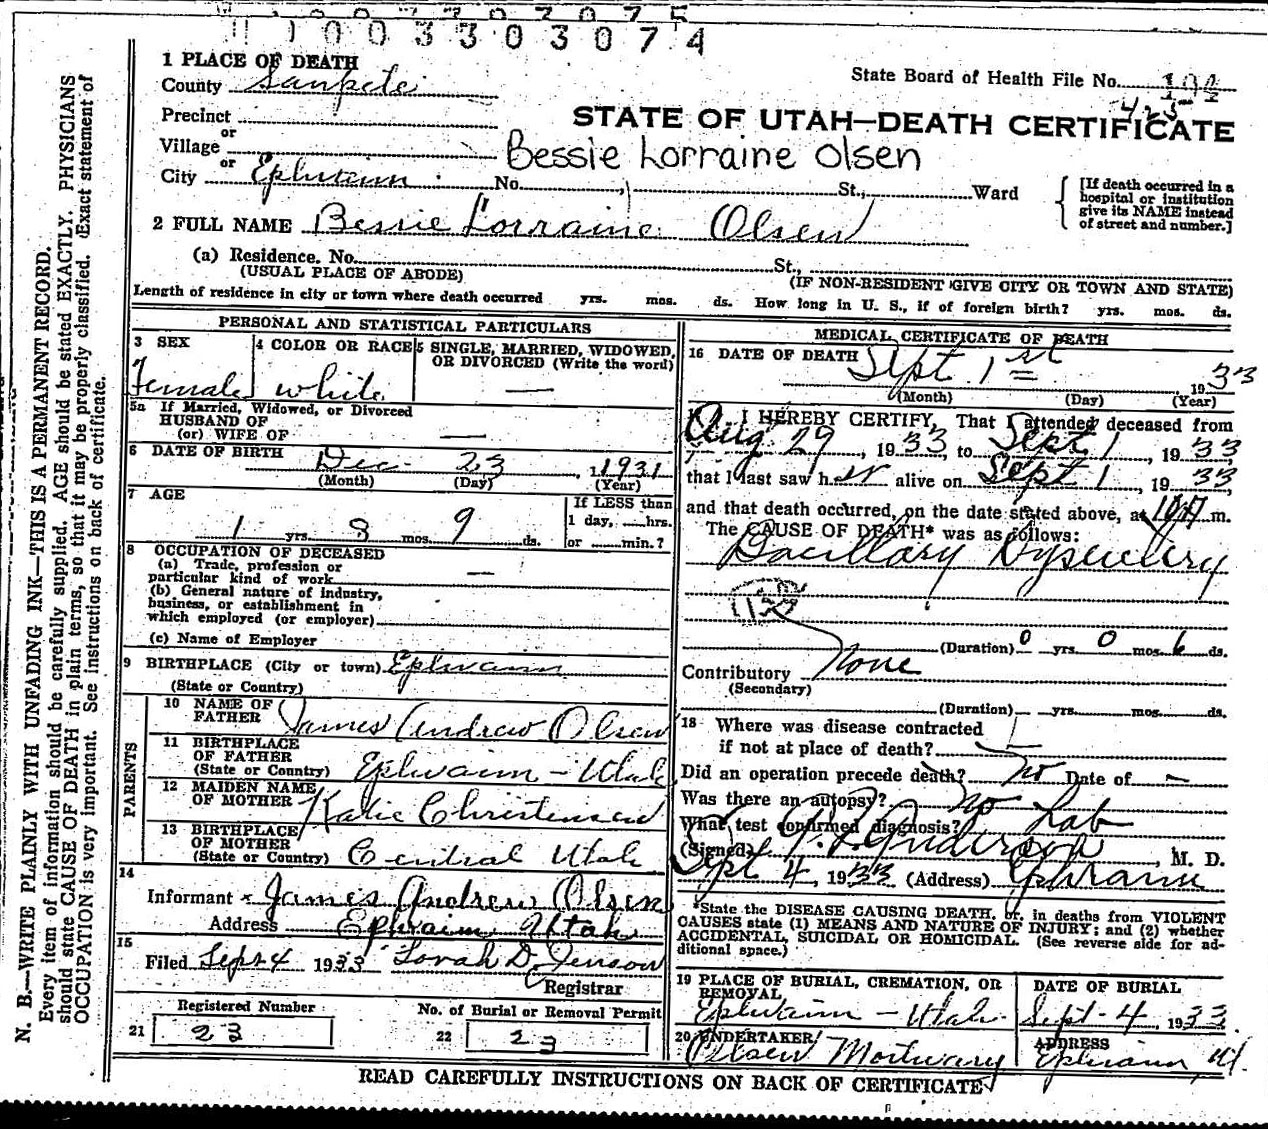 1 1 0 0 3 3 0 3 0 7 4
1 PLACE OF DEATH
County Sanpete
State Board of Health File No.
425
STATE OF UTAH—DEATH CERTIFICATE
Precinct
or
Village
Bessie Lorraine Olsen
or
City Ephraim No. St., Ward
[If death occurred in a hospital or institution give its NAME instead of street and number.]
2 FULL NAME Bessie Lorraine Olsen
(a) Residence. No. St.,
(USUAL PLACE OF ABODE) (IF NON-RESIDENT GIVE CITY OR TOWN AND STATE)
Length of residence in city or town where death occurred yrs. mos. ds. How long in U. S., if of foreign birth? yrs. mos. ds.
PERSONAL AND STATISTICAL PARTICULARS
3 SEX
Female
4 COLOR OR RACE
white
5 SINGLE, MARRIED, WIDOWED,
OR DIVORCED (Write the word)
—
5a If Married, Widowed, or Divorced
HUSBAND OF
(or) WIFE OF —
6 DATE OF BIRTH Dec. 23, 1931
(Month) (Day) (Year)
7 AGE
If LESS than
1 day, hrs.
or min.?
1 yrs. 8 mos. 9 ds.
8 OCCUPATION OF DECEASED
(a) Trade, profession or
particular kind of work —
(b) General nature of industry,
business, or establishment in
which employed (or employer)
(c) Name of Employer
9 BIRTHPLACE (City or town) Ephraim
(State or Country)
PARENTS
10 NAME OF
FATHER James Andrew Olsen
11 BIRTHPLACE
OF FATHER
(State or Country) Ephraim - Utah
12 MAIDEN NAME
OF MOTHER Katie Christensen
13 BIRTHPLACE
OF MOTHER
(State or Country) Central Utah
14
Informant James Andrew Olsen
Address Ephraim Utah
15
Filed Sept 4 1933 Lovah D. Jenson
Registrar
Registered Number
21 23
No. of Burial or Removal Permit
22 23
MEDICAL CERTIFICATE OF DEATH
16 DATE OF DEATH Sept 1st 1933
(Month) (Day) (Year)
I HEREBY CERTIFY, That I attended deceased from
Aug 29, 1933, to Sept 1, 1933,
that I last saw her alive on Sept 1, 1933,
and that death occurred, on the date stated above, at m.
The CAUSE OF DEATH* was as follows:
Bacillary Dysentery
(Duration) 0 yrs. 0 mos. 6 ds.
Contributory None
(Secondary)
(Duration) yrs. mos. ds.
18 Where was disease contracted
if not at place of death? —
Did an operation precede death? No Date of —
Was there an autopsy? No
What test confirmed diagnosis? Lab
(Signed) Anderson, M. D.
Sept 4, 1933 (Address) Ephraim
*State the DISEASE CAUSING DEATH, or, in deaths from VIOLENT
CAUSES state (1) MEANS AND NATURE OF INJURY; and (2) whether
ACCIDENTAL, SUICIDAL OR HOMICIDAL. (See reverse side for ad-
ditional space.)
19 PLACE OF BURIAL, CREMATION, OR
REMOVAL
Ephraim - Utah
DATE OF BURIAL
Sept - 4, 1933
20 UNDERTAKER
Olsen Mortuary
ADDRESS
Ephraim, Ut.
READ CAREFULLY INSTRUCTIONS ON BACK OF CERTIFICATE
N. B.—WRITE PLAINLY WITH UNFADING INK—THIS IS A PERMANENT RECORD.
Every item of information should be carefully supplied. AGE should be stated EXACTLY. PHYSICIANS
should state CAUSE OF DEATH in plain terms, so that it may be properly classified. Exact statement of
OCCUPATION is very important. See instructions on back of certificate.